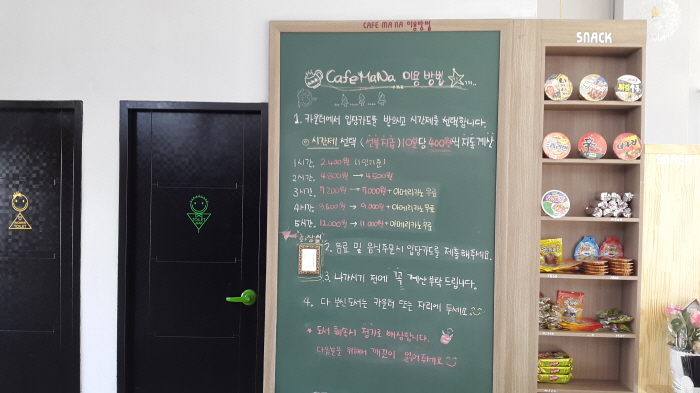 CAFE MA NA 이용방법
Cafe MaNa 이용 방법
1. 카운터에서 입장카드를 받으시고 시간제를 선택합니다.
◎ 시간제 선택 (선불지급) 10분당 400원씩 자동계산
1시간. 2,400원 (1인기준)
2시간. 4,800원 → 4,500원
3시간. 7,200원 → 7,000원 + 아메리카노 무료
4시간. 9,600원 → 9,000원 + 아메리카노 무료
5시간. 12,000원 → 11,000원 + 아메리카노 무료
화장실
2. 음료 및 음식주문시 입장카드를 제출해주세요.
3. 나가시기 전에 꼭 계산 부탁 드립니다.
4. 다 보신 도서는 카운터 또는 자리에 두세요
* 도서 훼손시 정가로 배상합니다.
다음분을 위해서 깨끗이 읽어주세요
SNACK
TOILET
TOILET